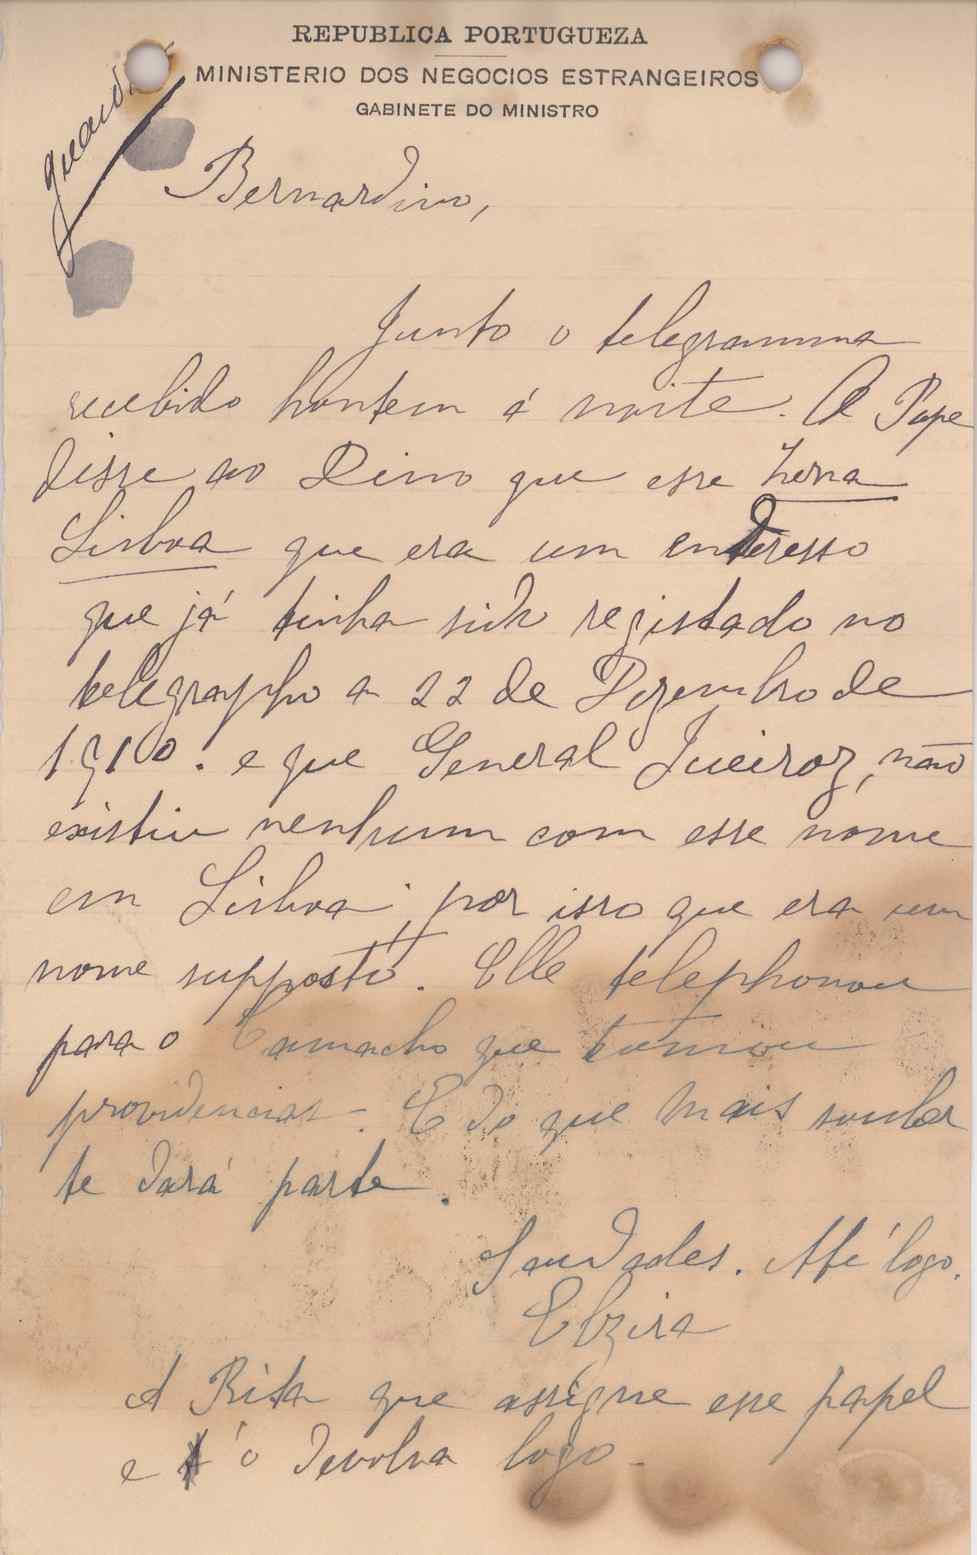 REPUBLICA PORTUGUEZA
MINISTERIO DOS NEGOCIOS ESTRANGEIROS
GABINETE DO MINISTRO
Bernardino,
Junto o telegramma
recebido hontem á noite. O Pope
disse ao Dino que esse
Lisboa que era um enderesso
que já tinha sido registado no
telegrapho a 22 de Dezembro de
1910. e que General Queiroz, não
existiu nenhum com esse nome
em Lisboa; por isso que era um
nome supposto. Elle telephonou
para o Camacho que tomou
providencias. E do que mais souber
te dará parte.
Saudades. Até logo.
Elzira
A Rita que assigne esse papel
e o devolva logo.